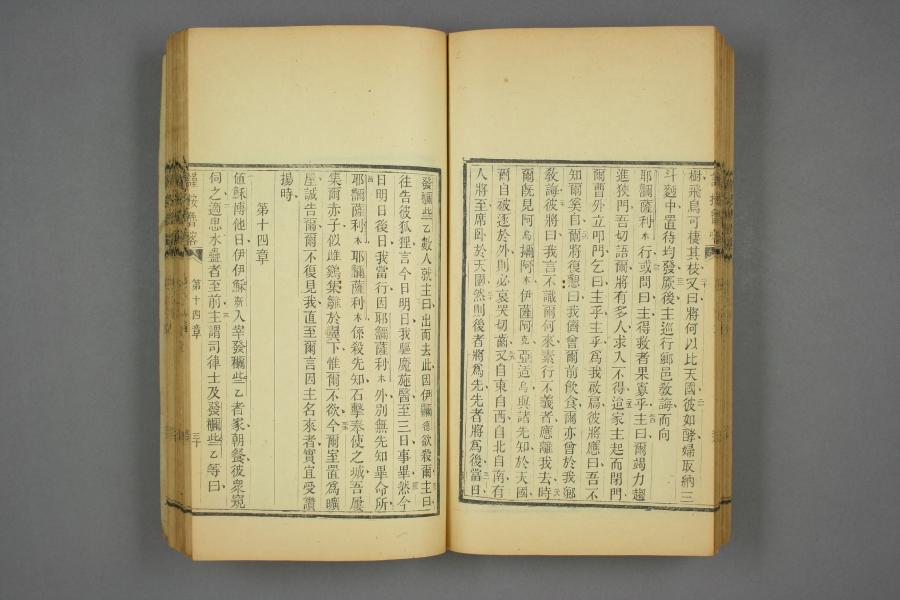 樹飛鳥可棲其枝又曰將何以比天國彼如酵婦取納三
斗麪中置待均發厥後主巡行鄉邑教誨而向
耶嚠薩利木行或問曰主得救者果寡乎主曰爾竭力趨
進狹門吾切語爾將有多人求入不得迨家主起而閉門
爾曹外立叩門乞曰主乎主乎為我啟扃彼將應曰吾不
知爾奚自爾將復懇曰我儕曾爾前飲食爾亦曾於我鄉
教誨彼將曰我言不識爾何來素行不義者應離我去時
爾既見阿烏擼阿木伊薩阿克亞适烏與諸先知於天國
爾自破逐於外則必哀哭切齒又自東自西自北自南有
人將至席卧於天國然則後者將為先先者將為後當日
發嚠些乙數人就主曰出而去此因伊嚠德欲殺爾主曰
往告彼狐狸言今日明日我驅魔施醫至三日事畢然今
日明日後日我當行因耶嚠薩利木外別無先知畢命所
耶嚠薩利木耶嚠薩利木係殺先知石擊奉使之城吾屢
集爾赤子似雌鷄集雛於翼下惟爾不欲今爾室置為曠
屋誠告爾爾不復見我直至爾言因主名來者實宜受讚
揚時
第十四章
值穌博他日伊伊穌斯入宰發嚠些乙者家朝餐彼衆窺
伺之適患水蠱者至前主謂司律士及發嚠些乙等曰
第十四章
三十